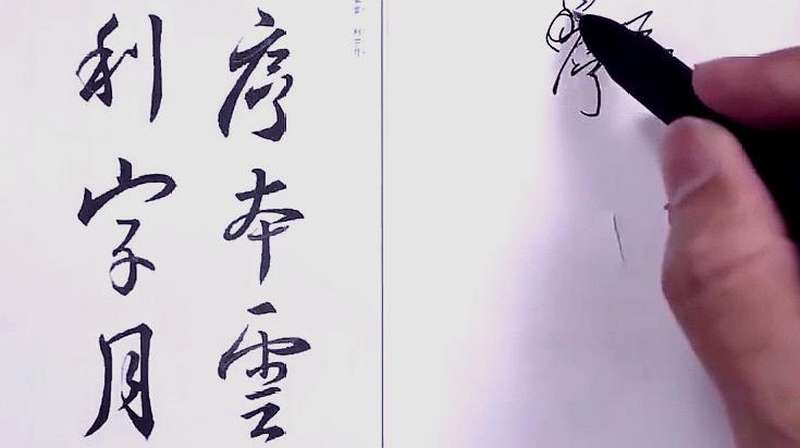 序本雲
利字月